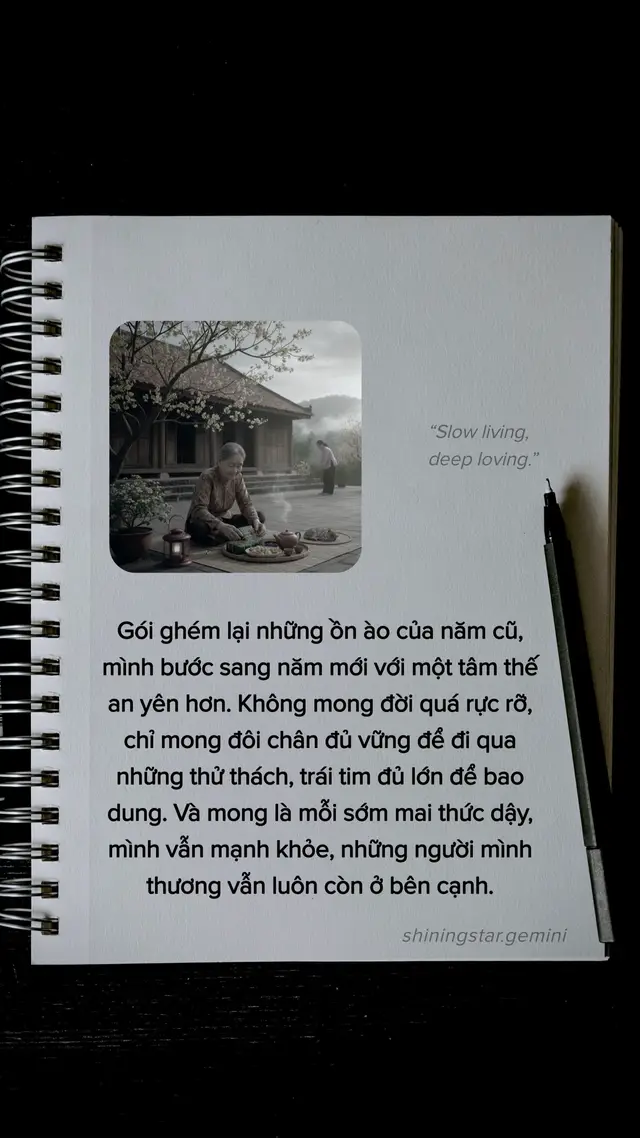 “Slow living,
deep loving.”
Gói ghém lại những ồn ào của năm cũ,
mình bước sang năm mới với một tâm thế
an yên hơn. Không mong đời quá rực rỡ,
chỉ mong đôi chân đủ vững để đi qua
những thử thách, trái tim đủ lớn để bao
dung. Và mong là mỗi sớm mai thức dậy,
mình vẫn mạnh khỏe, những người mình
thương vẫn luôn còn ở bên cạnh.
shiningstar.gemini